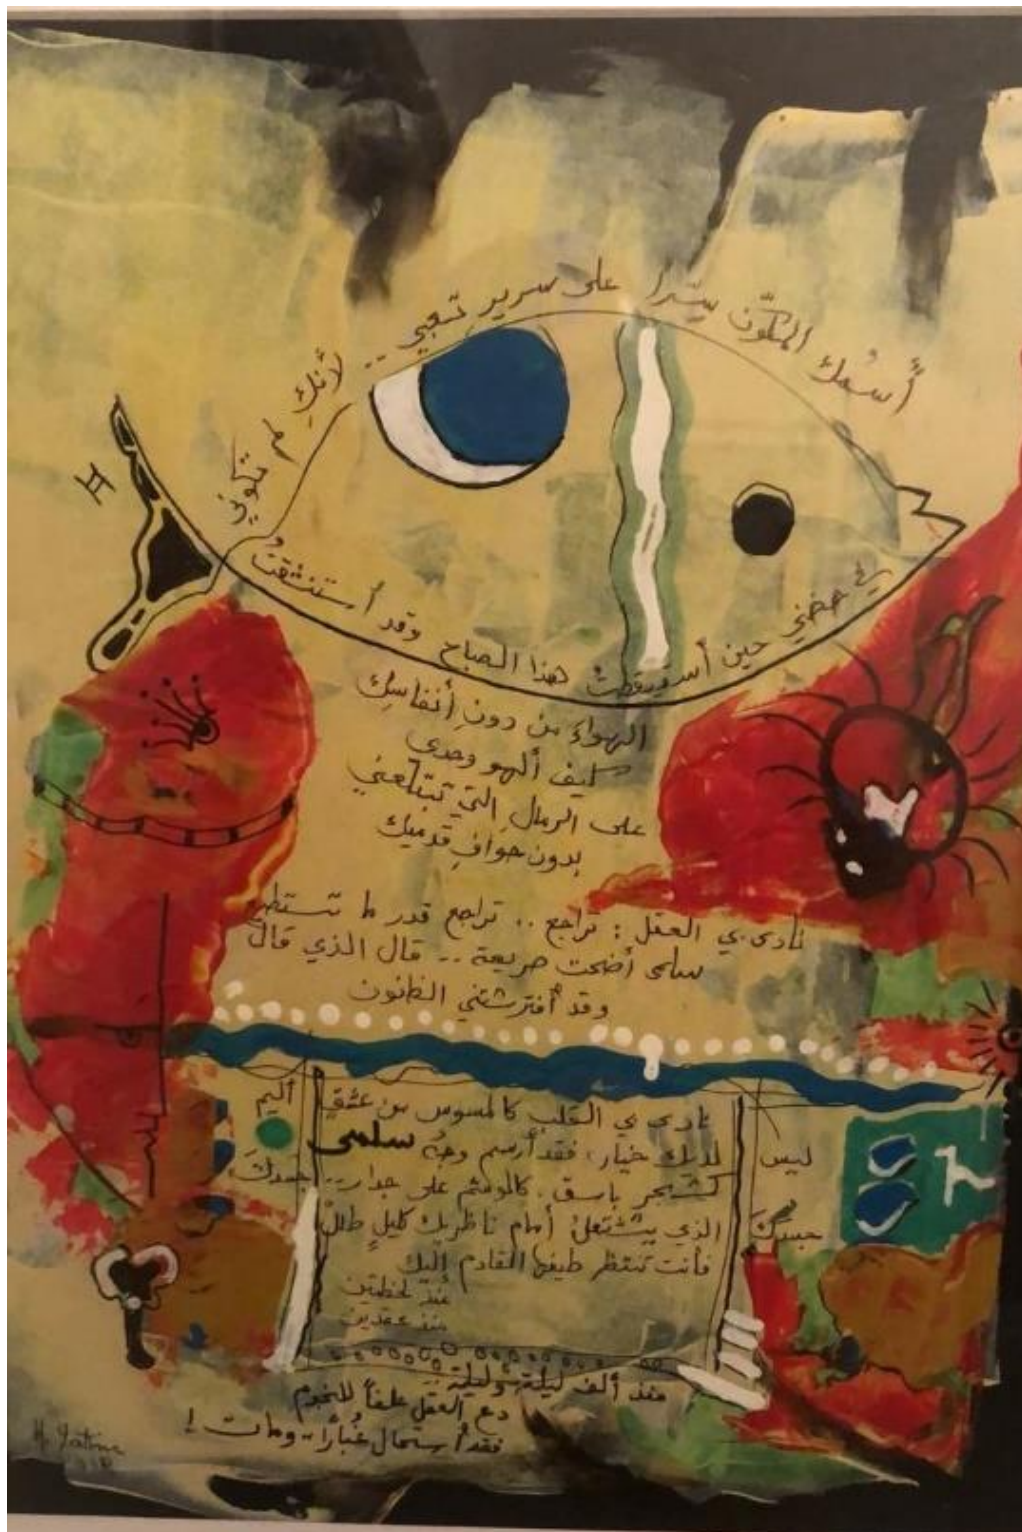 أسمك المكوّن سترا على سرير تعبي .. لأنكِ لم تكوني
في حضني حين أستيقظتُ هذا الصباح وقد أستنشقتُ
الهواء من دونِ أنفاسِك
كيف ألهو وحدي
على الرمال التي تبتلعني
بدون حوافِ قدميك
نادى بي العقل : تراجع .. تراجع قدر ما تستطيع
سلمى أضحت صريعة .. قال الذي قال
وقد أفترشتني الظنون
نادى بي القلب كالمسوس من عشقٍ أليم
ليس لديك خيار، فقد أرسم وجهُ سلمى
كشجر باسق. كالوشم على جدار .. جسدكَ
جسدكَ الذي يشتعلُ أمام ناظريك كليلٍ
فأنت تنتظر طيفها القادم إليك
منذ لحظتين
منذ عقدين
منذ ألف ليلة وليلة ..
دع العقل علفاً للنجوم
فقد أستحال غُباراً .. ومات !